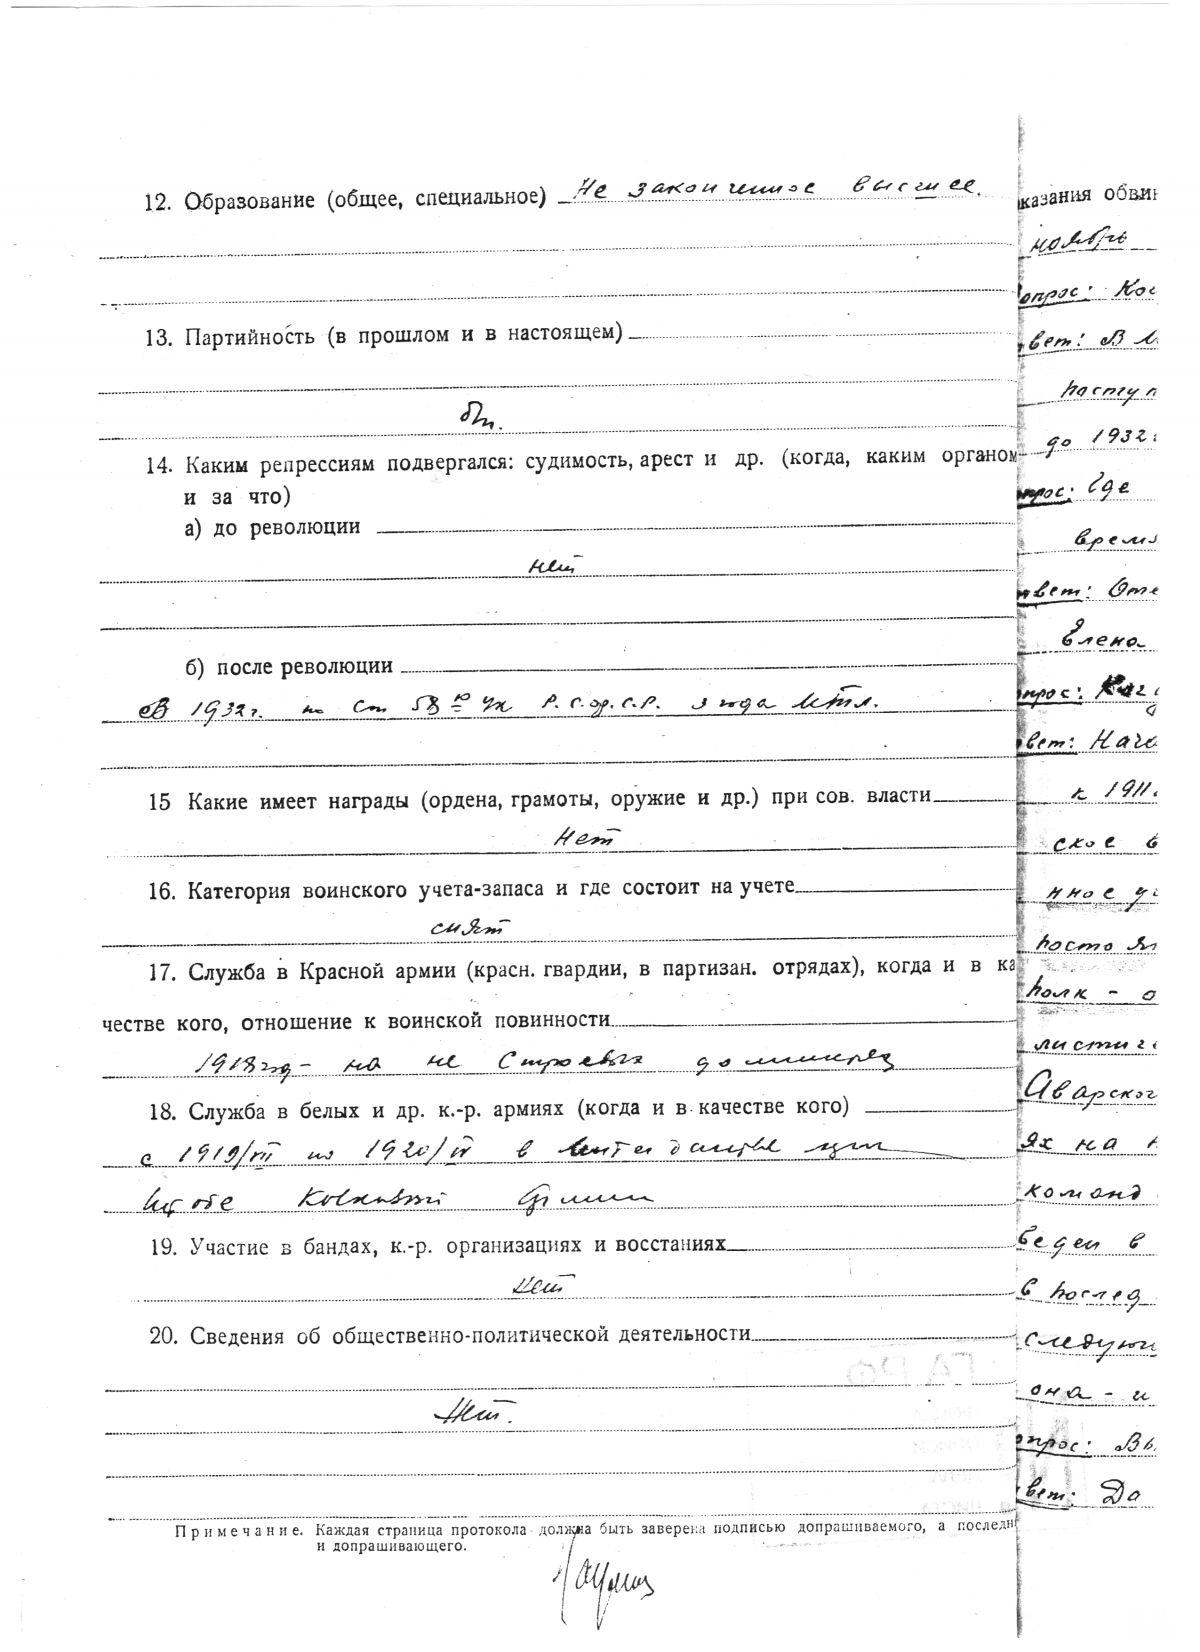 12. Образование (общее, специальное) Не законченное высшее.
13. Партийность (в прошлом и в настоящем)
б/п.
14. Каким репрессиям подвергался: судимость, арест и др. (когда, каким органом
и за что)
а) до революции
нет
б) после революции
В 1932г. по ст 58 10 УК Р.С.Ф.С.Р. 3 года
15 Какие имеет награды (ордена, грамоты, оружие и др.) при сов. власти
Нет
16. Категория воинского учета-запаса и где состоит на учете
снят
17. Служба в Красной армии (красн. гвардии, в партизан. отрядах), когда и в ка
честве кого, отношение к воинской повинности
1918 год - на не строевых
18. Служба в белых и др. к.-р. армиях (когда и в качестве кого)
с 1919/III по 1920/IV в
19. Участие в бандах, к.-р. организациях и восстаниях
Нет
20. Сведения об общественно-политической деятельности
Нет.
Примечание. Каждая страница протокола должна быть заверена подписью допрашиваемого, а последн
и допрашивающего.
казания обвин
ноябрь
опрос: Ког
вет: В
поступ
до 1932г
прос: Где
время
твет: Оте
Елена
прос:
вет: Нача
к 1911
ское в
нное
постоян
полк - о
листич
Аварског
ях на
команд
веден в
в послед
следующ
она - и
опрос: Вы
вет: Да